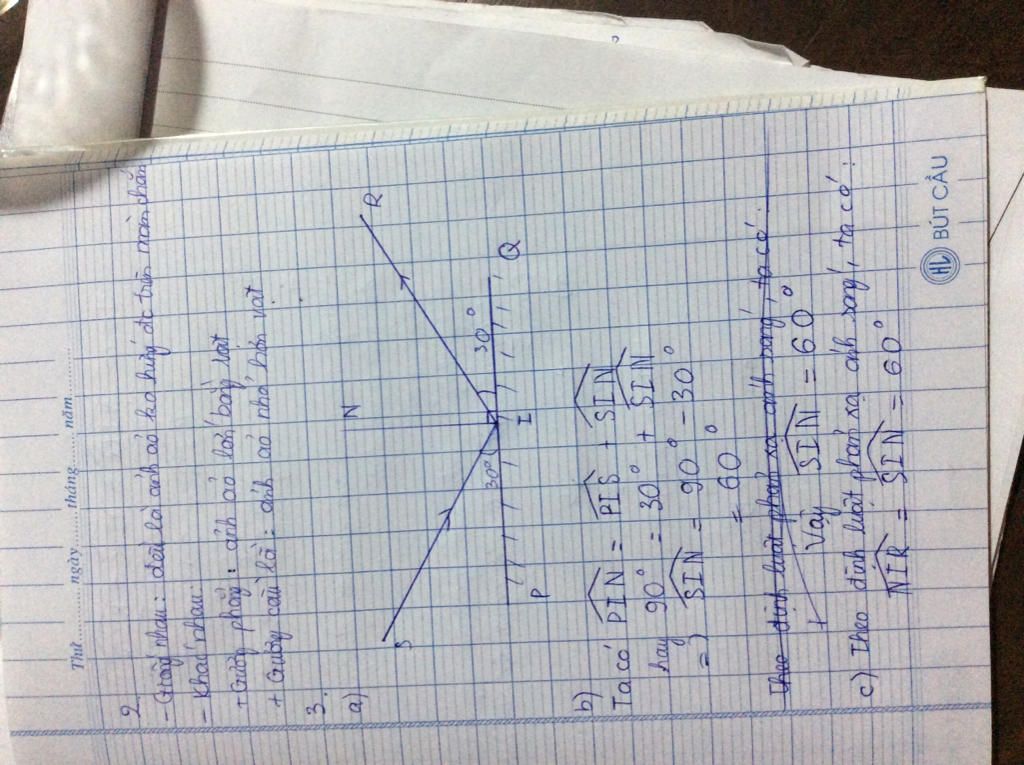 Thứ.............ngày.............tháng.............năm.............
2.
- Giống nhau: đều là ảnh ảo ko hứng đc trên màn chắn
- Khác nhau:
+ Gương phẳng: ảnh ảo lớn bằng vật
+ Gương cầu lồi: ảnh ảo nhỏ hơn vật
3.
a)
N
S
R
30°
30°
P
I
Q
b)
Ta có PIN = PIS + SIN
hay 90° = 30° + SIN
=) SIN = 90° - 30°
= 60°
Theo định luật phản xạ ánh sáng, ta có:
+ Vậy SIN = 60°
c) Theo định luật phản xạ ánh sáng, ta có:
NIR = SIN = 60°
HL BÚT CẦU